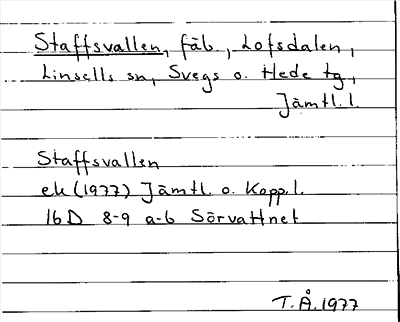 Staffsvallen, fäb., Lofsdalen,
Linsells sn, Svegs o. Hede tg,
Jämtl. l.
Staffsvallen
ek (1977) Jämtl. o. Kopp. l.
16D 8-9 a-b Sörvattnet
T.Å. 1977